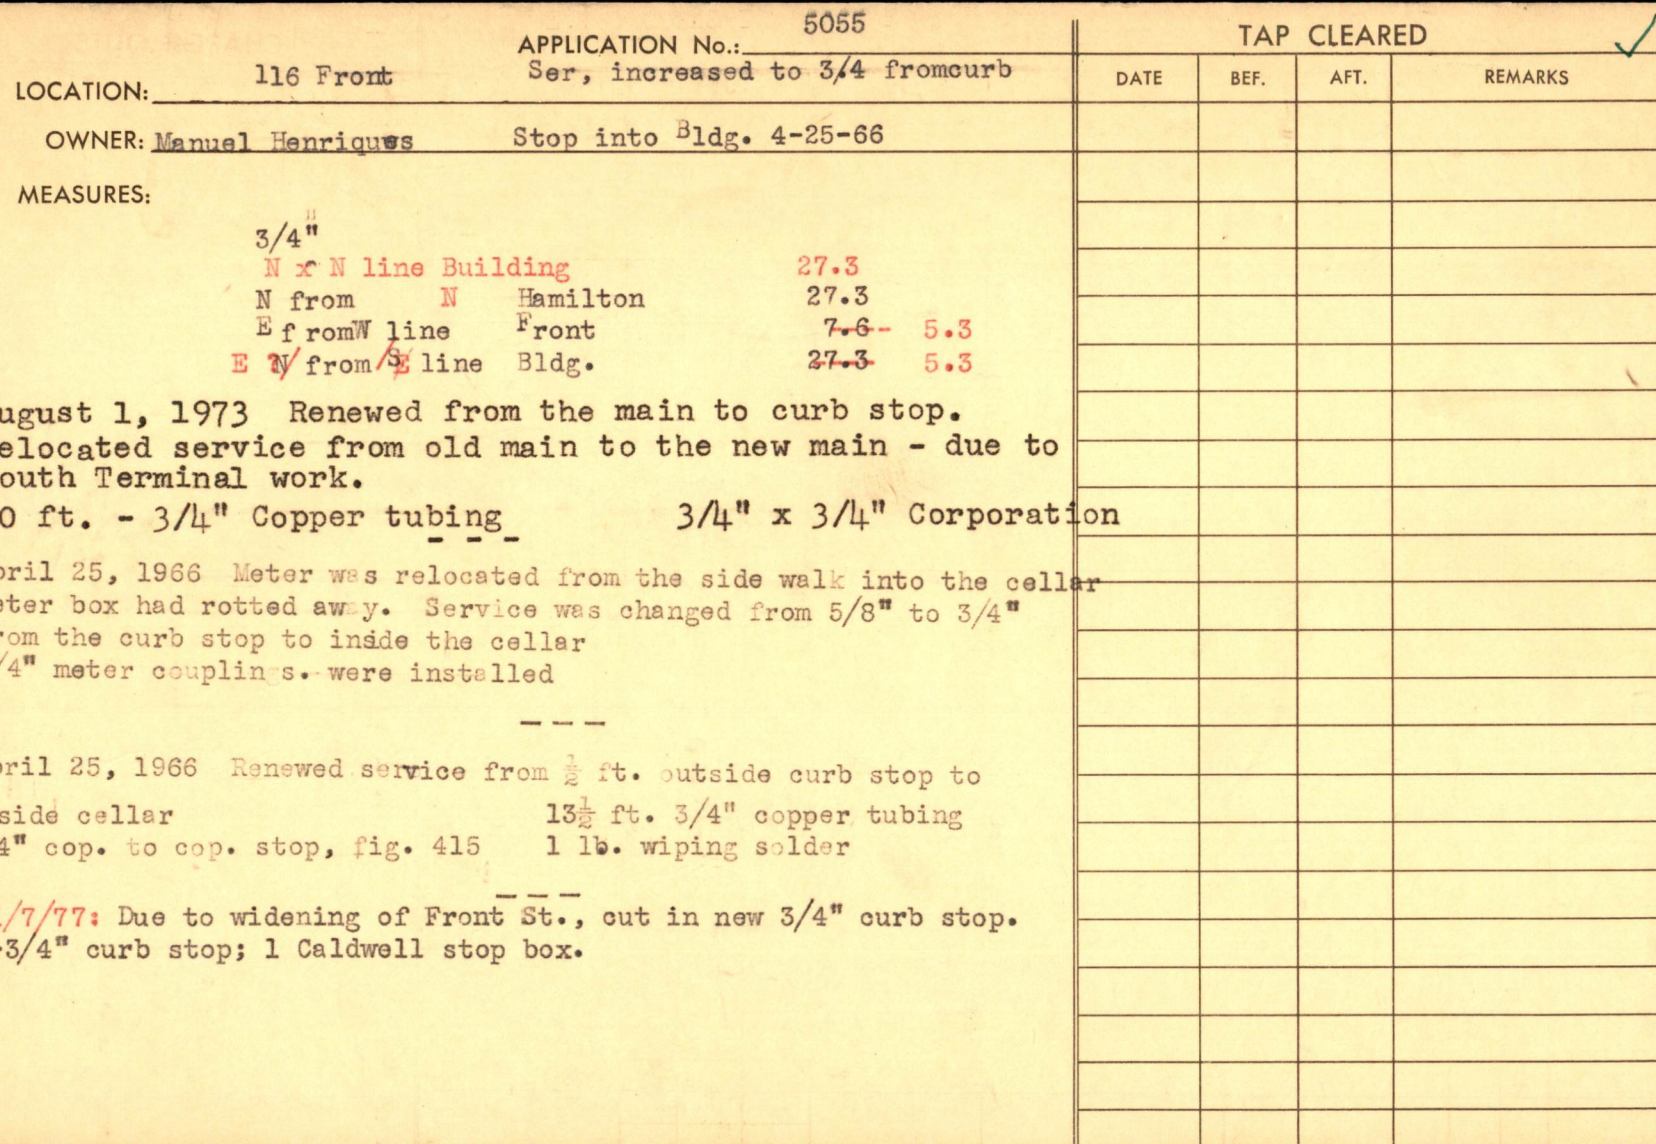 5055
APPLICATION No.:
TAP CLEARED
116 Front Ser, increased to 3/4 fromcurb
LOCATION:
DATE BEF. AFT. REMARKS
OWNER: Manuel Henriques Stop into Bldg. 4-25-66
MEASURES:
3/4"
N x N line Building 27.3
N from N Hamilton 27.3
E fromW line Front 7.6 5.3
E N from S E line Bldg. 27.3 5.3
ugust 1, 1973 Renewed from the main to curb stop.
elocated service from old main to the new main - due to
outh Terminal work.
0 ft. - 3/4" Copper tubing 3/4" x 3/4" Corporation
- - -
pril 25, 1966 Meter was relocated from the side walk into the cellar
eter box had rotted away. Service was changed from 5/8" to 3/4"
rom the curb stop to inside the cellar
/4" meter couplings. were installed
- - -
pril 25, 1966 Renewed service from ½ ft. outside curb stop to
side cellar 13½ ft. 3/4" copper tubing
4" cop. to cop. stop, fig. 415 1 lb. wiping solder
- - -
/7/77: Due to widening of Front St., cut in new 3/4" curb stop.
-3/4" curb stop; 1 Caldwell stop box.